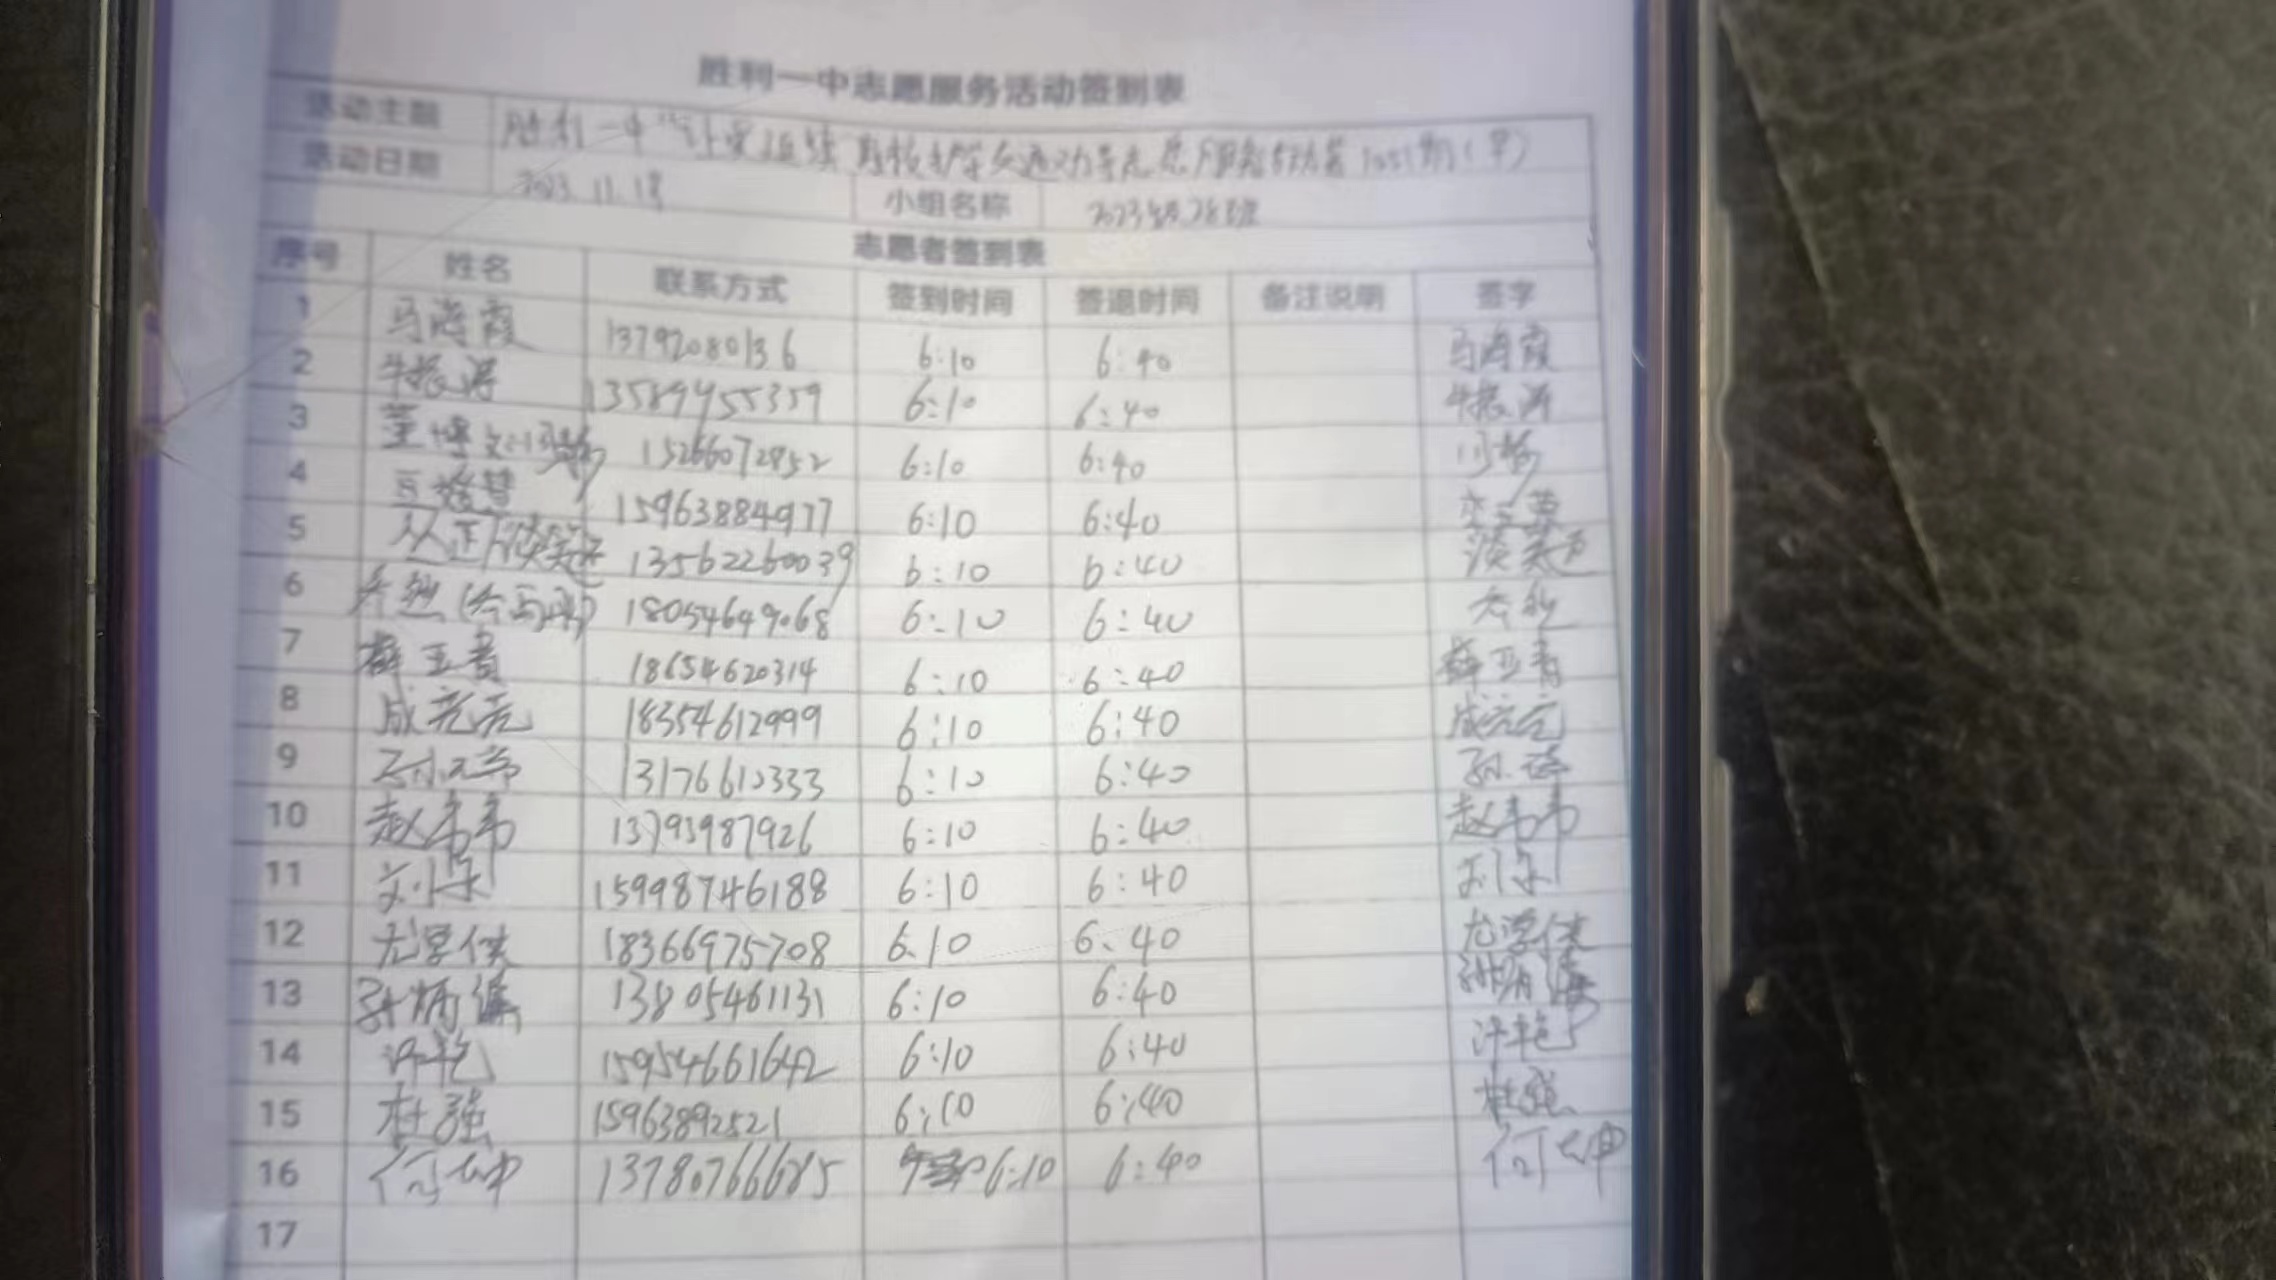 胜利一中志愿服务活动签到表
活动主题 胜利一中"让爱延续 志愿服务 1051期(早)
活动日期 2023.11.18 小组名称 2023级28班
志愿者签到表
序号 姓名 联系方式 签到时间 签退时间 备注说明 签字
1 马海霞 13792080136 6:10 6:40 马海霞
2 牛振涛 13589455359 6:10 6:40 牛振涛
3 董博文 15266072852 6:10 6:40
4 15963884977 6:10 6:40
5 13562260039 6:10 6:40
6 18054649068 6:10 6:40
7 薛玉青 18654620314 6:10 6:40 薛玉青
8 成元元 18354612999 6:10 6:40 成元元
9 13176610333 6:10 6:40
10 赵韦韦 13793987926 6:10 6:40 赵韦韦
11 15998746188 6:10 6:40
12 尤学侠 18366975708 6.10 6.40 尤学侠
13 孙炳谦 13805461131 6:10 6:40
14 许艳 15954661642 6:10 6:40 许艳
15 杜强 15963892521 6:10 6:40 杜强
16 何坤 13780766685 6:10 6:40 何坤
17